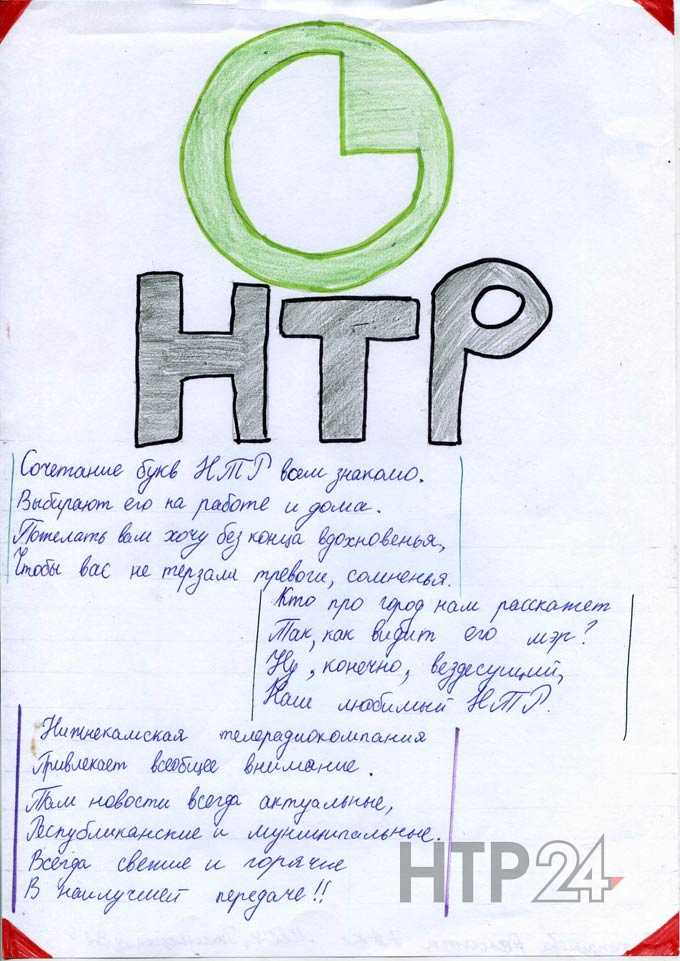 НТР
Сочетание букв НТР всем знакомо.
Выбирают его на работе и дома.
Пожелать вам хочу без конца вдохновенья,
Чтобы вас не терзали тревоги, сомненья.
Кто про город нам расскажет
Так, как видит его мэр?
Ну, конечно, вездесущий,
Наш любимый НТР.
Нижнекамская телерадиокомпания
Привлекает всеобщее внимание.
Там новости всегда актуальные,
Республиканские и муниципальные.
Всегда свежие и горячие
В наилучшей передаче!!
НТР24